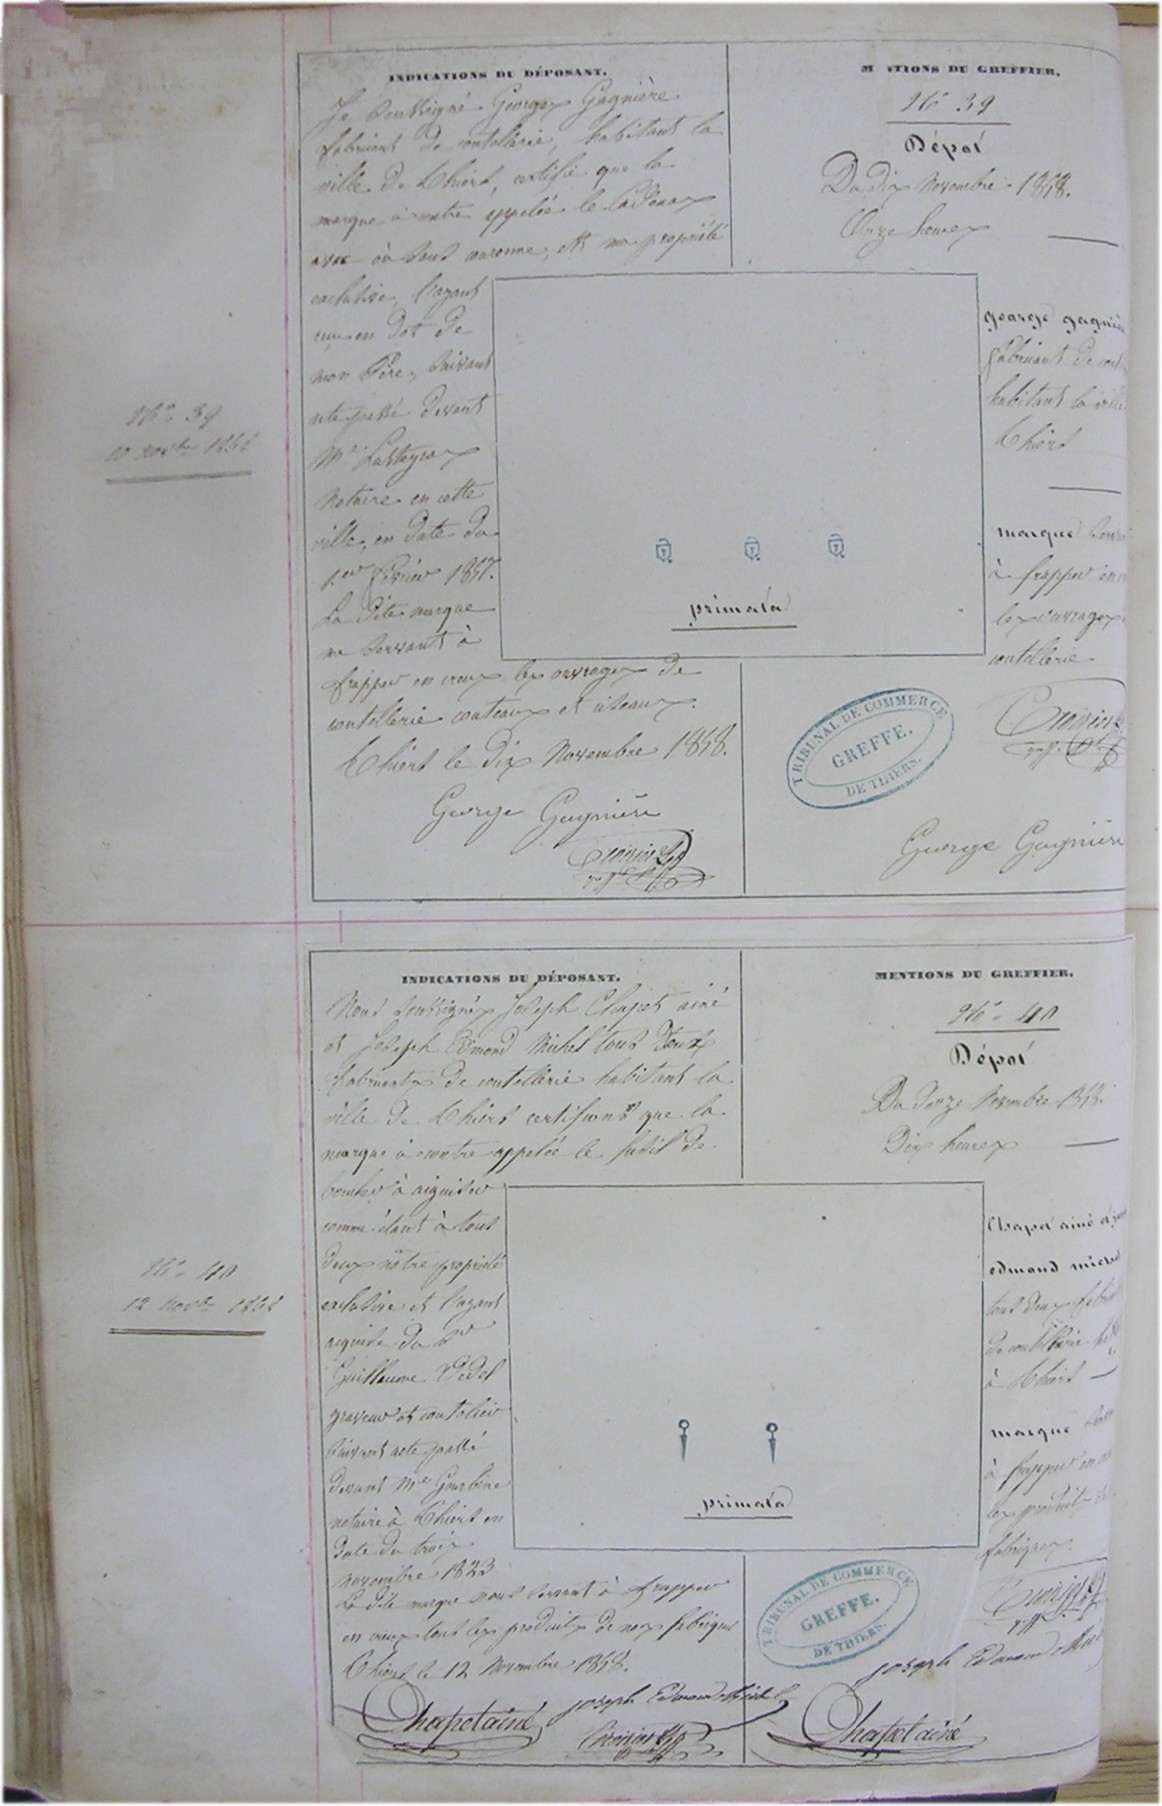 INDICATIONS DU DÉPOSANT.
Je soussigné George Gagnière
fabricant de coutellerie, habitant la
ville de Thiers, certifie que la
marque ci contre appelée le Cadenax
ou sans couronne, est ma propriété
exclusive, l'ayant
reçu en dot de
mon Père, suivant
acte passé devant
Me Lasteyras
Notaire en cette
ville, en date du
1er Février 1857.
La dite marque
me servant à
frapper en creux les ouvrages de
coutellerie couteaux et ciseaux.
Thiers le dix Novembre 1858.
George Gagnière
MENTIONS DU GREFFIER.
No 39
Dépôt
Du dix Novembre 1858.
Onze heures
george gagnière
fabricant de
habitant la ville
Thiers
marque
à frapper en
les ouvrages
coutellerie
George Gagnière
primata
TRIBUNAL DE COMMERCE
GREFFE.
DE THIERS.
No 39
10 novbre 1858
INDICATIONS DU DÉPOSANT.
Nous soussignés Joseph Chapet ainé
et Joseph Edmond Michel tous deux
fabricants de coutellerie habitant la
ville de Thiers certifions que la
marque ci contre appelée le fusil de
boucher à aiguiser
comme étant à tous
deux nôtre propriété
exclusive et l'ayant
acquise du Sr
Guillaume Vedel
graveur et coutelier
suivant acte passé
devant Me Gourbine
notaire à Thiers en
date du trois
novembre 1823
La dite marque nous servant à frapper
en creux tous les produits de nos fabriques
Thiers le 12 Novembre 1858.
Chapet ainé
Joseph Edmond Michel
MENTIONS DU GREFFIER.
No 40
Dépôt
Du douze Novembre 1858.
Dix heures
Chapet ainé
edmond michel
tous deux
de coutellerie
à Thiers
marque
à frapper en
les produits
fabriques.
Joseph Edmond
Chapet ainé
primata
TRIBUNAL DE COMMERCE
GREFFE.
DE THIERS.
No 40
12 novbre 1858